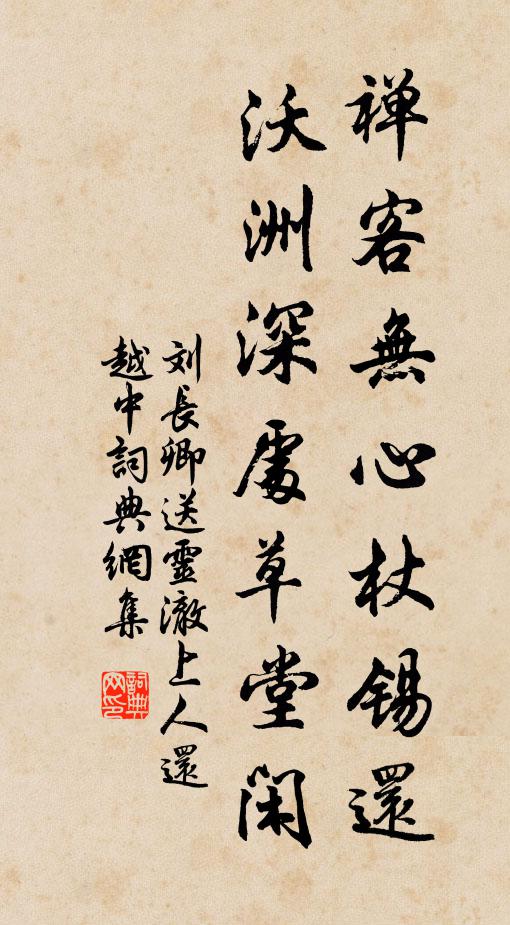 禅客無心杖锡還
沃洲深處草堂閑
刘長卿送靈澈上人還
越中詞典網集
詞典
网印